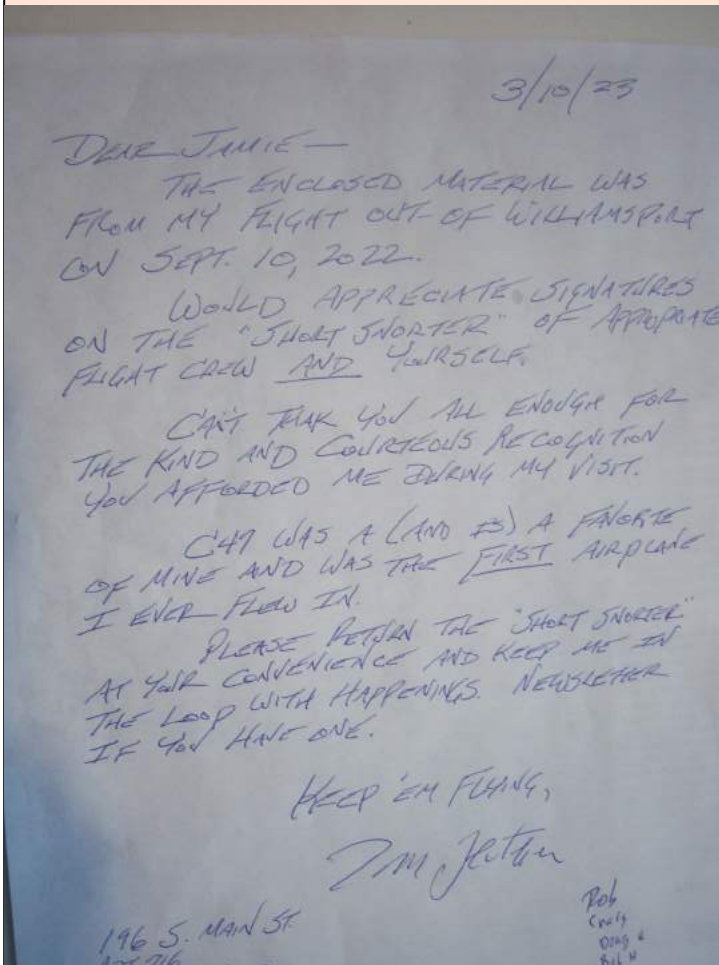 3/10/23
DEAR JAMIE—
THE ENCLOSED MATERIAL WAS
FROM MY FLIGHT OUT OF WILLIAMSPORT
ON SEPT. 10, 2022.
WOULD APPRECIATE SIGNATURES
ON THE "SHORT SNORTER" OF APPROPRIATE
FLIGHT CREW AND YOURSELF.
CAN'T THAK YOU ALL ENOUGH FOR
THE KIND AND COURTEOUS RECOGNITION
YOU AFFORDED ME DURING MY VISIT.
C47 WAS A (AND IS) A FAVORITE
OF MINE AND WAS THE FIRST AIRPLANE
I EVER FLEW IN.
PLEASE RETURN THE "SHORT SNORTER"
AT YOUR CONVENIENCE AND KEEP ME IN
THE LOOP WITH HAPPENINGS. NEWSLETTER
IF YOU HAVE ONE.
KEEP 'EM FLYING,
196 S. MAIN ST.
Rob
Craig
Doug
Bob H